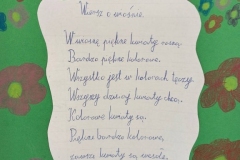 Wiersz o wiośnie.
Wiosną piękne kwiaty rosną.
Bardzo piękne kolorowe.
Wszystko jest w kolorach tęczy.
Wszyscy dziwny kwiaty chcą.
Kolorowe kwiaty są.
Piękne bardzo kolorowe,
kwiaty są